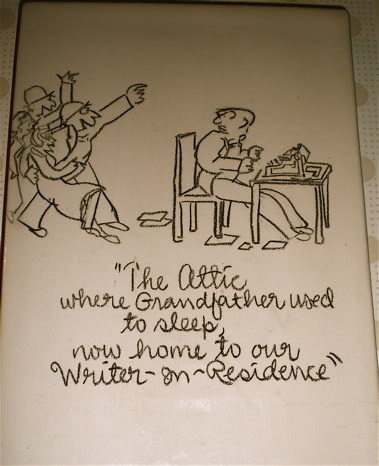 "The Attic
where Grandfather used
to sleep,
now home to our
Writer-In-Residence"